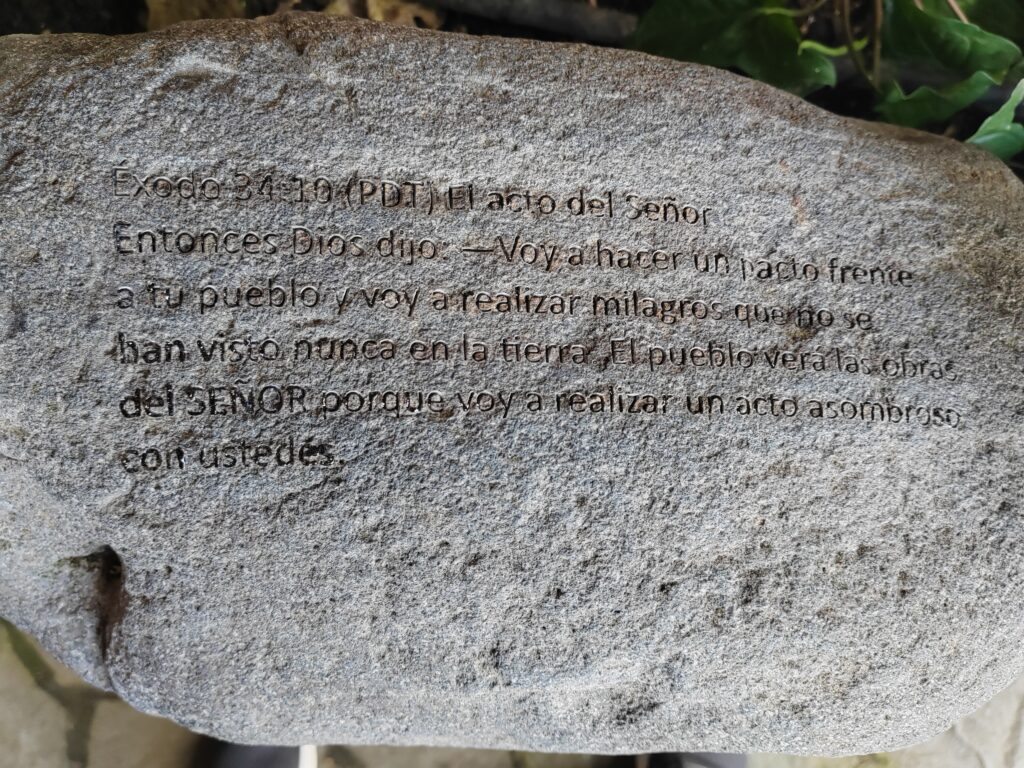 Éxodo 34:10 (PDT) El acto del Señor
Entonces Dios dijo: —Voy a hacer un pacto frente
a tu pueblo y voy a realizar milagros que no se
han visto nunca en la tierra. El pueblo verá las obras
del SEÑOR porque voy a realizar un acto asombroso
con ustedes.